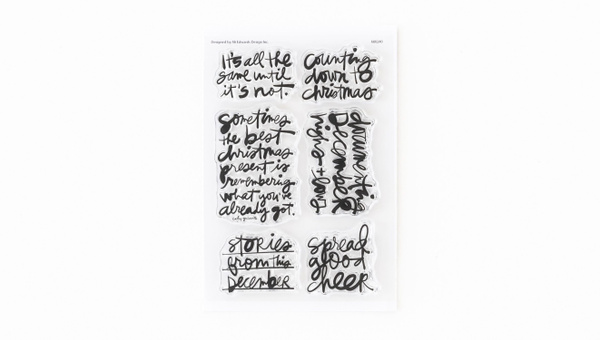 Designed by Ali Edwards Design Inc.
It's all the
same until
it's not.
Counting
down to
christmas
Sometimes
the best
christmas
present is
remembering
what you've
already got.
documenting
December
right now
stories
from this
December
spread
good
cheer